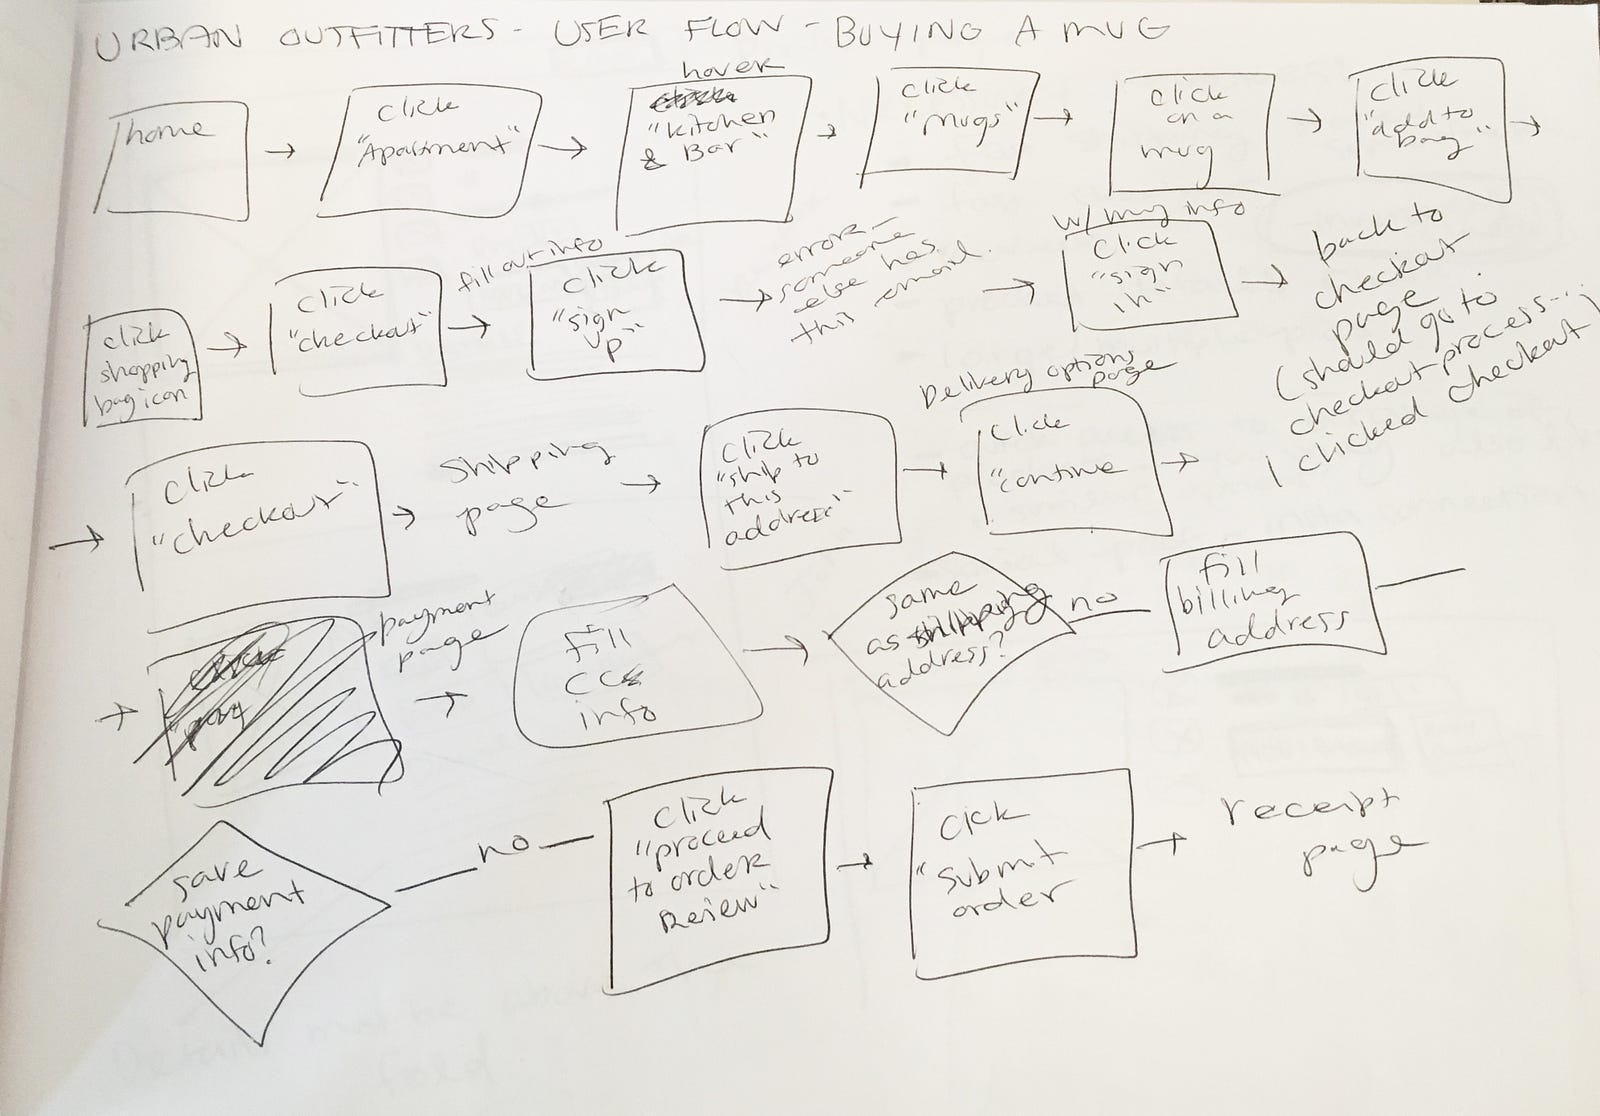 URBAN OUTFITTERS - USER FLOW - BUYING A MUG
home
click
"Apartment"
hover
"kitchen
& Bar"
click
"mugs"
click
on a
mug
click
"add to
bag"
click
shopping
bag icon
click
"checkout"
fill out info
click
"sign
up"
error -
someone
else has
this email.
w/ my info
click
"sign
in"
back to
checkout
page
(should go to
checkout process...
I clicked checkout)
click
"checkout"
shipping
page
click
"ship to
this
address"
Delivery options
page
click
"continue
payment
page
fill
CC
info
same
as shipping
address?
no
fill
billing
address
save
payment
info?
no
click
"proceed
to order
Review"
click
"submit
order
receipt
page